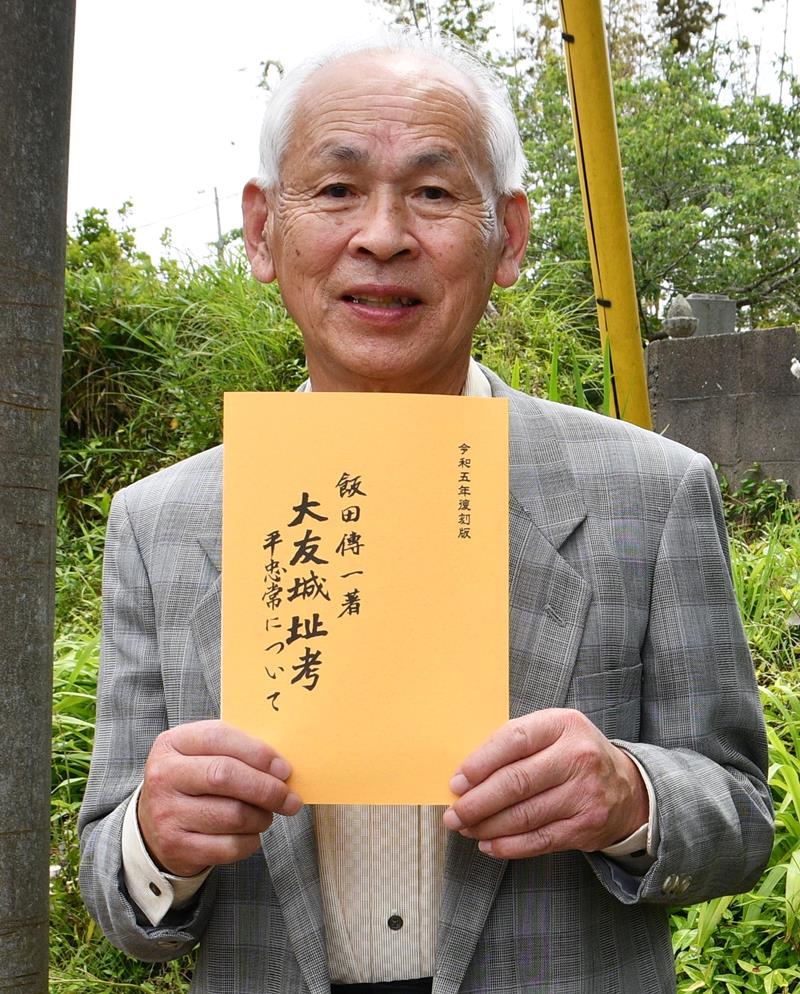 令和五年復刻版
飯田傳一著
大友城址考
平忠常について